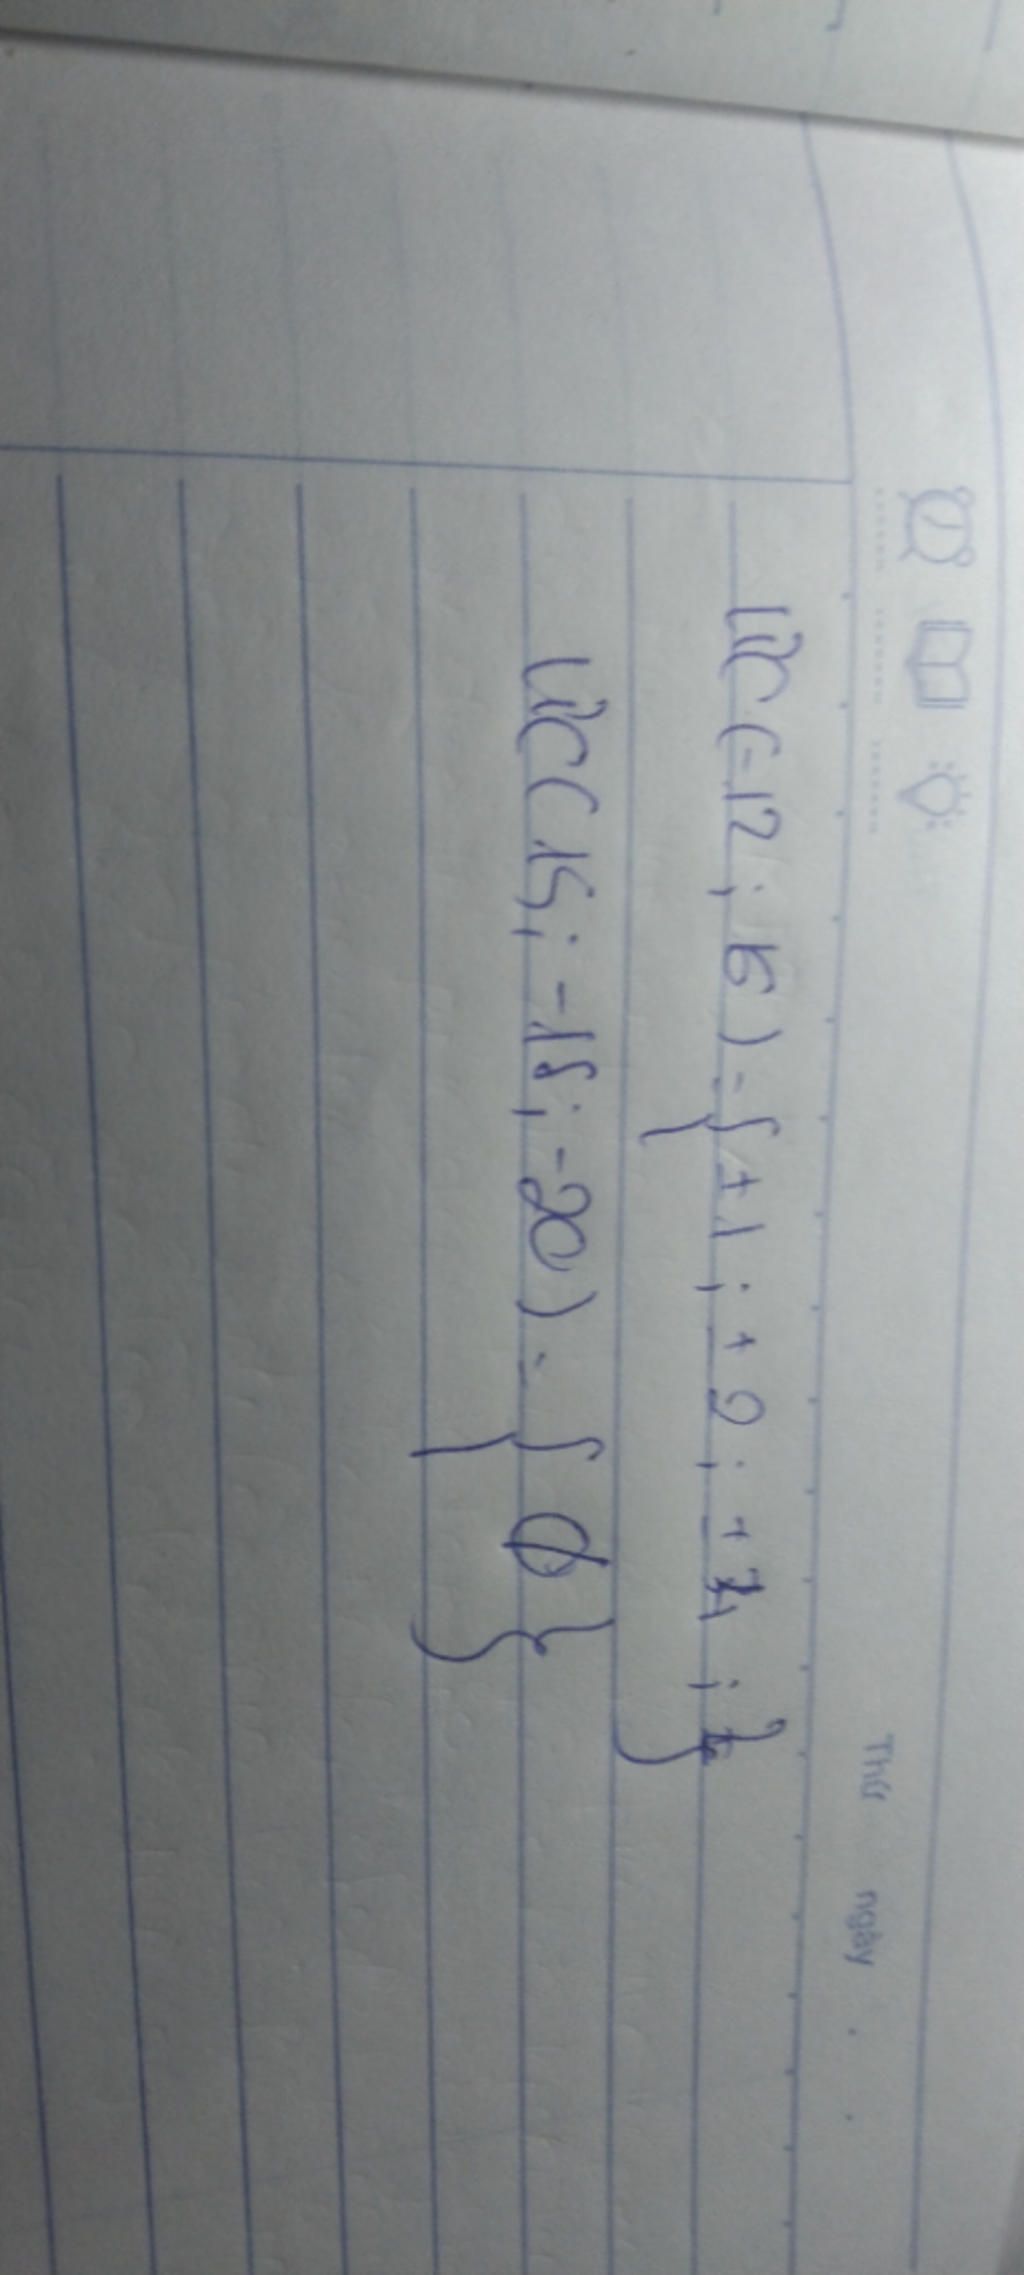 Thứ ngày
ƯC (-12 ; 15) = { ±1 ; ±2 ; ±3 ; }
ƯC (15 ; -18 ; -20) = { Ø }